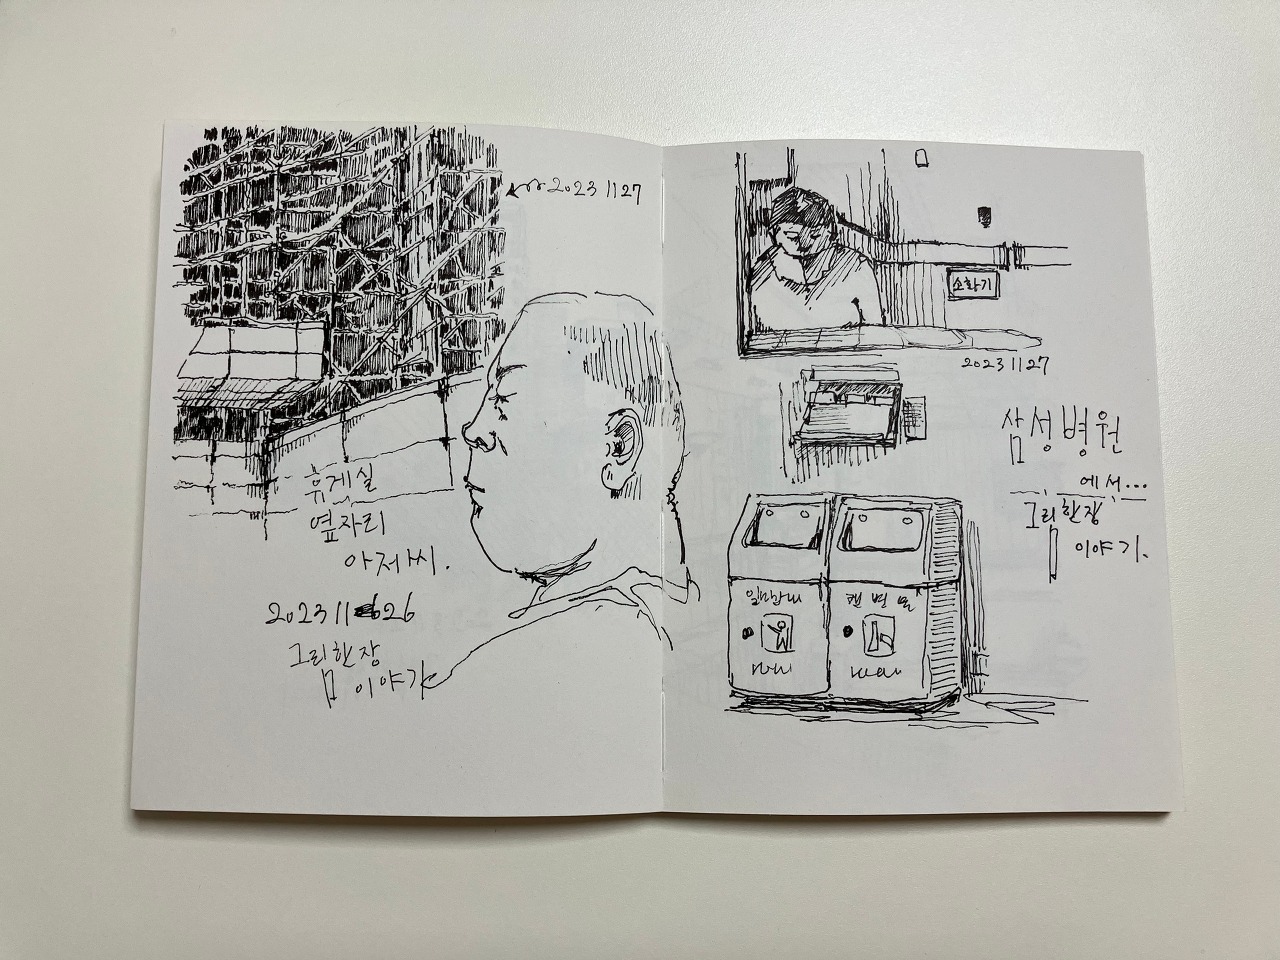 2023 11 27
휴게실
옆자리
아저씨.
2023 11 26
그림한장
이야기
소화기
2023 11 27
삼성병원
에서...
그림한장
이야기.
캔 병 류